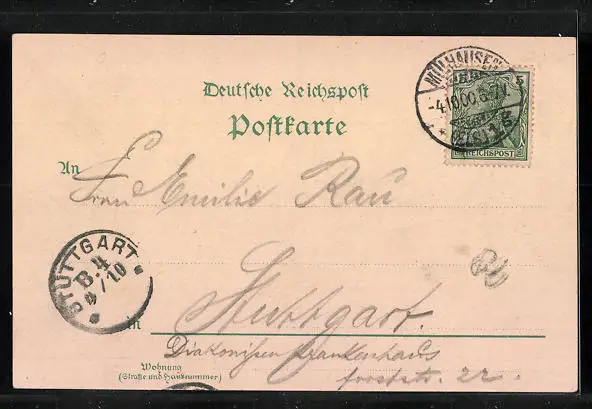 Deutsche Reichspost
Postkarte
MÜLHAUSEN
-4.10.00.6-7N
5
REICHSPOST
An
Frau Emilie Rau
STUTTGART
B.4
4/10
in
Stuttgart.
Diakonissen Krankenhaus
Wohnung
(Straße und Hausnummer)
forststr. 22.